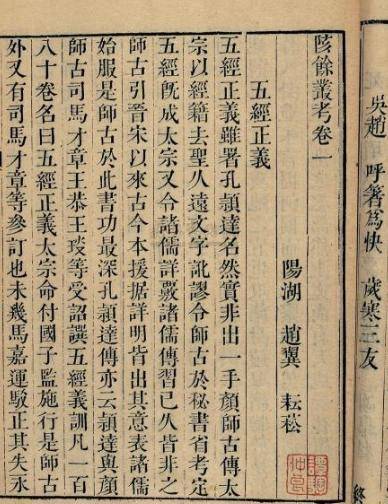 吳趙 呼箸爲快 歲寒三友
終
陔餘叢考卷一
陽湖 趙翼 耘菘
五經正義
五經正義雖署孔穎達名然實非出一手顏師古傳太
宗以經籍去聖人遠文字訛謬令師古於秘書省考定
五經既成太宗又令諸儒詳覈諸儒傳習已久皆非之
師古引晉宋以來古今本援據詳明皆出其意表諸儒
始服是師古於此書功最深孔穎達傳亦云穎達與顏
師古司馬才章王恭王琰等受詔譔五經義訓凡一百
八十卷名曰五經正義太宗命付國子監施行是師古
外又有司馬才章等參訂也未幾馬嘉運駁正其失永